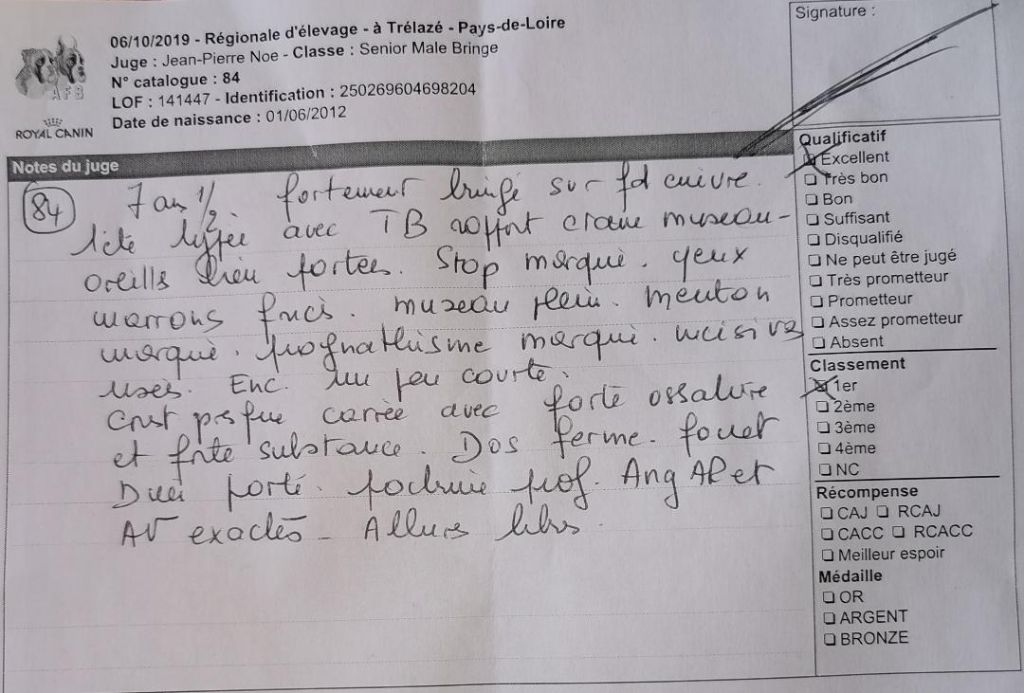 06/10/2019 - Régionale d'élevage - à Trélazé - Pays-de-Loire
Juge : Jean-Pierre Noe - Classe : Senior Male Bringe
N° catalogue : 84
LOF : 141447 - Identification : 250269604698204
Date de naissance : 01/06/2012
AFB
ROYAL CANIN
Signature :
Notes du juge
84
7 ans 1/2 fortement bringé sur fd cuivre.
Tête typée avec TB rapport crane museau-
oreills bien portées. Stop marqué. yeux
marrons foncés. museau plein. Menton
marqué. prognathisme marqué. incisives
usées. Enc. un peu courte.
Const presque carrée avec forte ossature
et forte substance. Dos ferme. fouet
bien porté. poitrine prof. Ang AR et
AV exactes - Allures libres.
Qualificatif
Excellent
Très bon
Bon
Suffisant
Disqualifié
Ne peut être jugé
Très prometteur
Prometteur
Assez prometteur
Absent
Classement
1er
2ème
3ème
4ème
NC
Récompense
CAJ RCAJ
CACC RCACC
Meilleur espoir
Médaille
OR
ARGENT
BRONZE